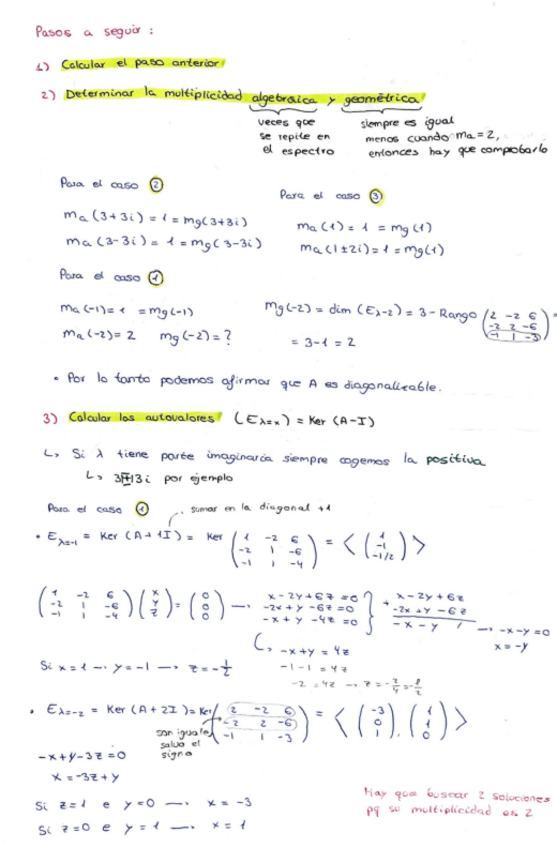 Pasos a seguir :
1) Calcular el paso anterior
2) Determinar la multiplicidad algebraica y geométrica
veces que se repite en el espectro
siempre es igual menos cuando ma = 2, entonces hay que comprobarlo
Para el caso ②
ma(3+3i) = 1 = mg(3+3i)
ma(3-3i) = 1 = mg(3-3i)
Para el caso ③
ma(1) = 1 = mg(1)
ma(1±2i) = 1 = mg(1)
Para el caso ①
ma(-1) = 1 = mg(-1)
ma(-2) = 2 mg(-2) = ?
mg(-2) = dim (Eλ-2) = 3 - Rango (2 -2 6
-2 2 -6
-1 1 -3) =
= 3-1 = 2
• Por lo tanto podemos afirmar que A es diagonalizable.
3) Calcular los autovalores (Eλ=x) = Ker (A-I)
↳ Si λ tiene parte imaginaria siempre cogemos la positiva
↳ 3+3i por ejemplo
Para el caso ①
sumar en la diagonal +1
• Eλ=-1 = Ker (A+1I) = Ker (1 -2 6
-2 1 -6
-1 1 -4) = < (1
-1
-1/2) >
(1 -2 6
-2 1 -6
-1 1 -4) (x
y
z) = (0
0
0) →
x-2y+6z = 0
-2x+y-6z = 0
-x+y-4z = 0
+ x-2y+6z
-2x+y-6z
-x-y / → -x-y=0
x=-y
-x+y = 4z
-1-1 = 4z
-2 = 4z → z = -2/4 = -1/2
Si x=1 → y=-1 → z=-1/2
• Eλ=-2 = Ker (A+2I) = Ker (2 -2 6
-2 2 -6
-1 1 -3) = < (-3
0
1), (1
1
0) >
son iguales salvo el signo
-x+y-3z=0
x=-3z+y
Si z=1 e y=0 → x=-3
Si z=0 e y=1 → x=1
Hay que buscar 2 soluciones
pq su multiplicidad es 2